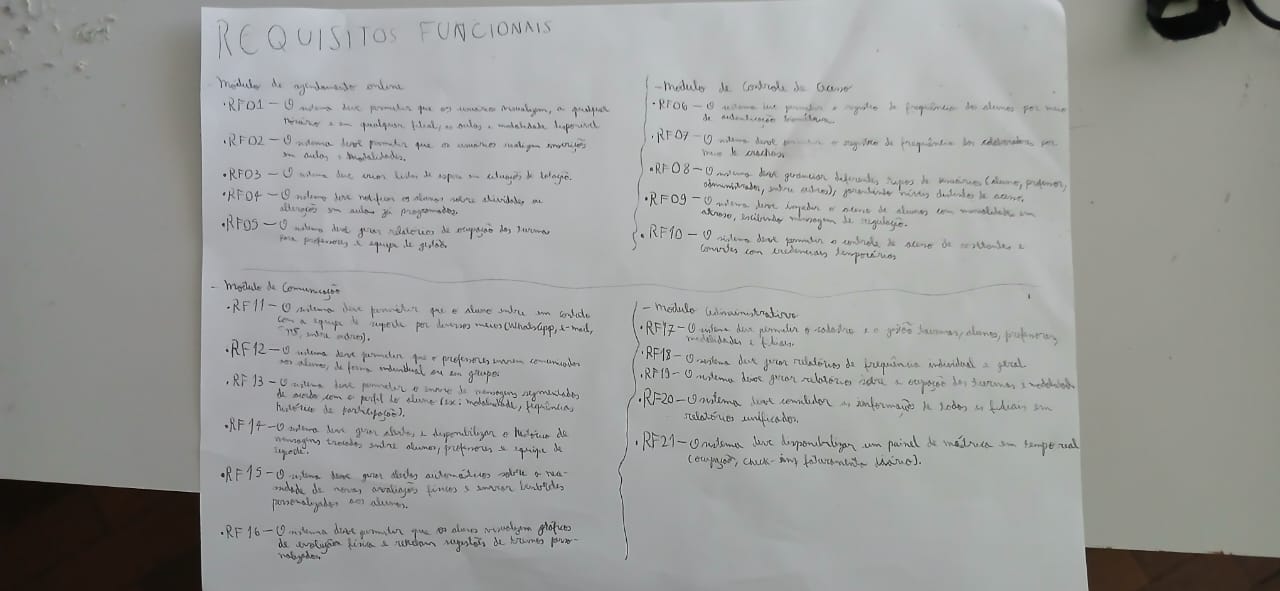 REQUISITOS FUNCIONAIS
Módulo de agendamento online
• RF01 — O sistema deve permitir que os usuários visualizem, a qualquer
horário e em qualquer filial, as aulas e modalidade disponível
• RF02 — O sistema deve permitir que os usuários realizem inscrições
em aulas e modalidades.
• RF03 — O sistema deve criar listas de espera em situações de lotação.
• RF04 — O sistema deve notificar os alunos sobre atividades ou
alterações em aulas já programadas.
• RF05 — O sistema deve gerar relatórios de ocupação das turmas
para professores e equipe de gestão.
- Módulo de Controle de acesso
• RF06 — O sistema deve permitir o registro de frequência dos alunos por meio
de autenticação biométrica.
• RF07 — O sistema deve permitir o registro de frequência dos colaboradores por
meio de crachás.
• RF08 — O sistema deve gerenciar diferentes tipos de usuários (aluno, professor,
administrador, entre outros), garantindo níveis distintos de acesso.
• RF09 — O sistema deve impedir o acesso de alunos com mensalidade em
atraso, exibindo mensagem de regulação.
• RF10 — O sistema deve permitir o controle de acesso de visitantes e
convites com credenciais temporárias
- Módulo de Comunicação
• RF11 — O sistema deve permitir que o aluno entre em contato
com a equipe de suporte por diversos meios (WhatsApp, e-mail,
entre outros).
• RF12 — O sistema deve permitir que o professores enviem comunicados
aos alunos, de forma individual ou em grupo.
• RF13 — O sistema deve permitir o envio de mensagens segmentadas
de acordo com o perfil do aluno (ex: modalidade, frequência,
histórico de participação).
• RF14 — O sistema deve gerar alertas, e disponibilizar o histórico de
mensagens trocadas entre alunos, professores e equipe de
suporte.
• RF15 — O sistema deve gerar alertas automáticos sobre a nece-
sidade de novas avaliações físicas e enviar lembretes
personalizados aos alunos.
• RF16 — O sistema deve permitir que os alunos visualizem gráficos
de evolução física e recebam sugestões de treinos perso-
nalizados.
- Módulo administrativo
• RF17 — O sistema deve permitir o cadastro e a gestão turmas, alunos, professores,
modalidades e filiais.
• RF18 — O sistema deve gerar relatórios de frequência individual e geral
• RF19 — O sistema deve gerar relatórios sobre a ocupação das turmas e modalidade
• RF20 — O sistema deve consolidar as informação de todas as filiais em
relatórios unificados.
• RF21 — O sistema deve disponibilizar um painel de métrica em tempo real
(ocupação, check-ins, faturamento diário).